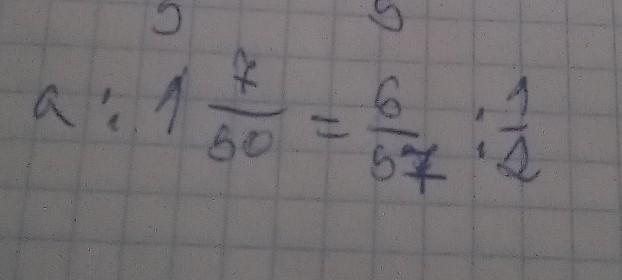 a : 1 7/50 = 6/57 : 1/2